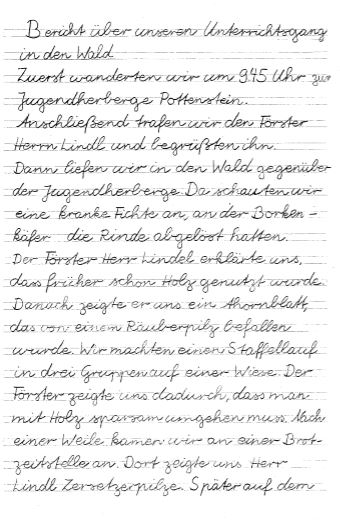 Bericht über unseren Unterrichtsgang
in den Wald
Zuerst wanderten wir um 9.45 Uhr zur
Jugendherberge Pottenstein.
Anschließend trafen wir den Förster
Herrn Lindl und begrüßten ihn.
Dann liefen wir in den Wald gegenüber
der Jugendherberge. Da schauten wir
eine kranke Fichte an, an der Borken-
käfer die Rinde abgelöst hatten.
Der Förster Herr Lindel erklärte uns,
dass früher schon Holz genutzt wurde.
Danach zeigte er uns ein Ahornblatt,
das von einem Räuberpilz befallen
wurde. Wir machten einen Staffellauf
in drei Gruppen auf einer Wiese. Der
Förster zeigte uns dadurch, dass man
mit Holz sparsam umgehen muss. Nach
einer Weile kamen wir an einer Brot-
zeitstelle an. Dort zeigte uns Herr
Lindl Zersetzerpilze. Später auf dem